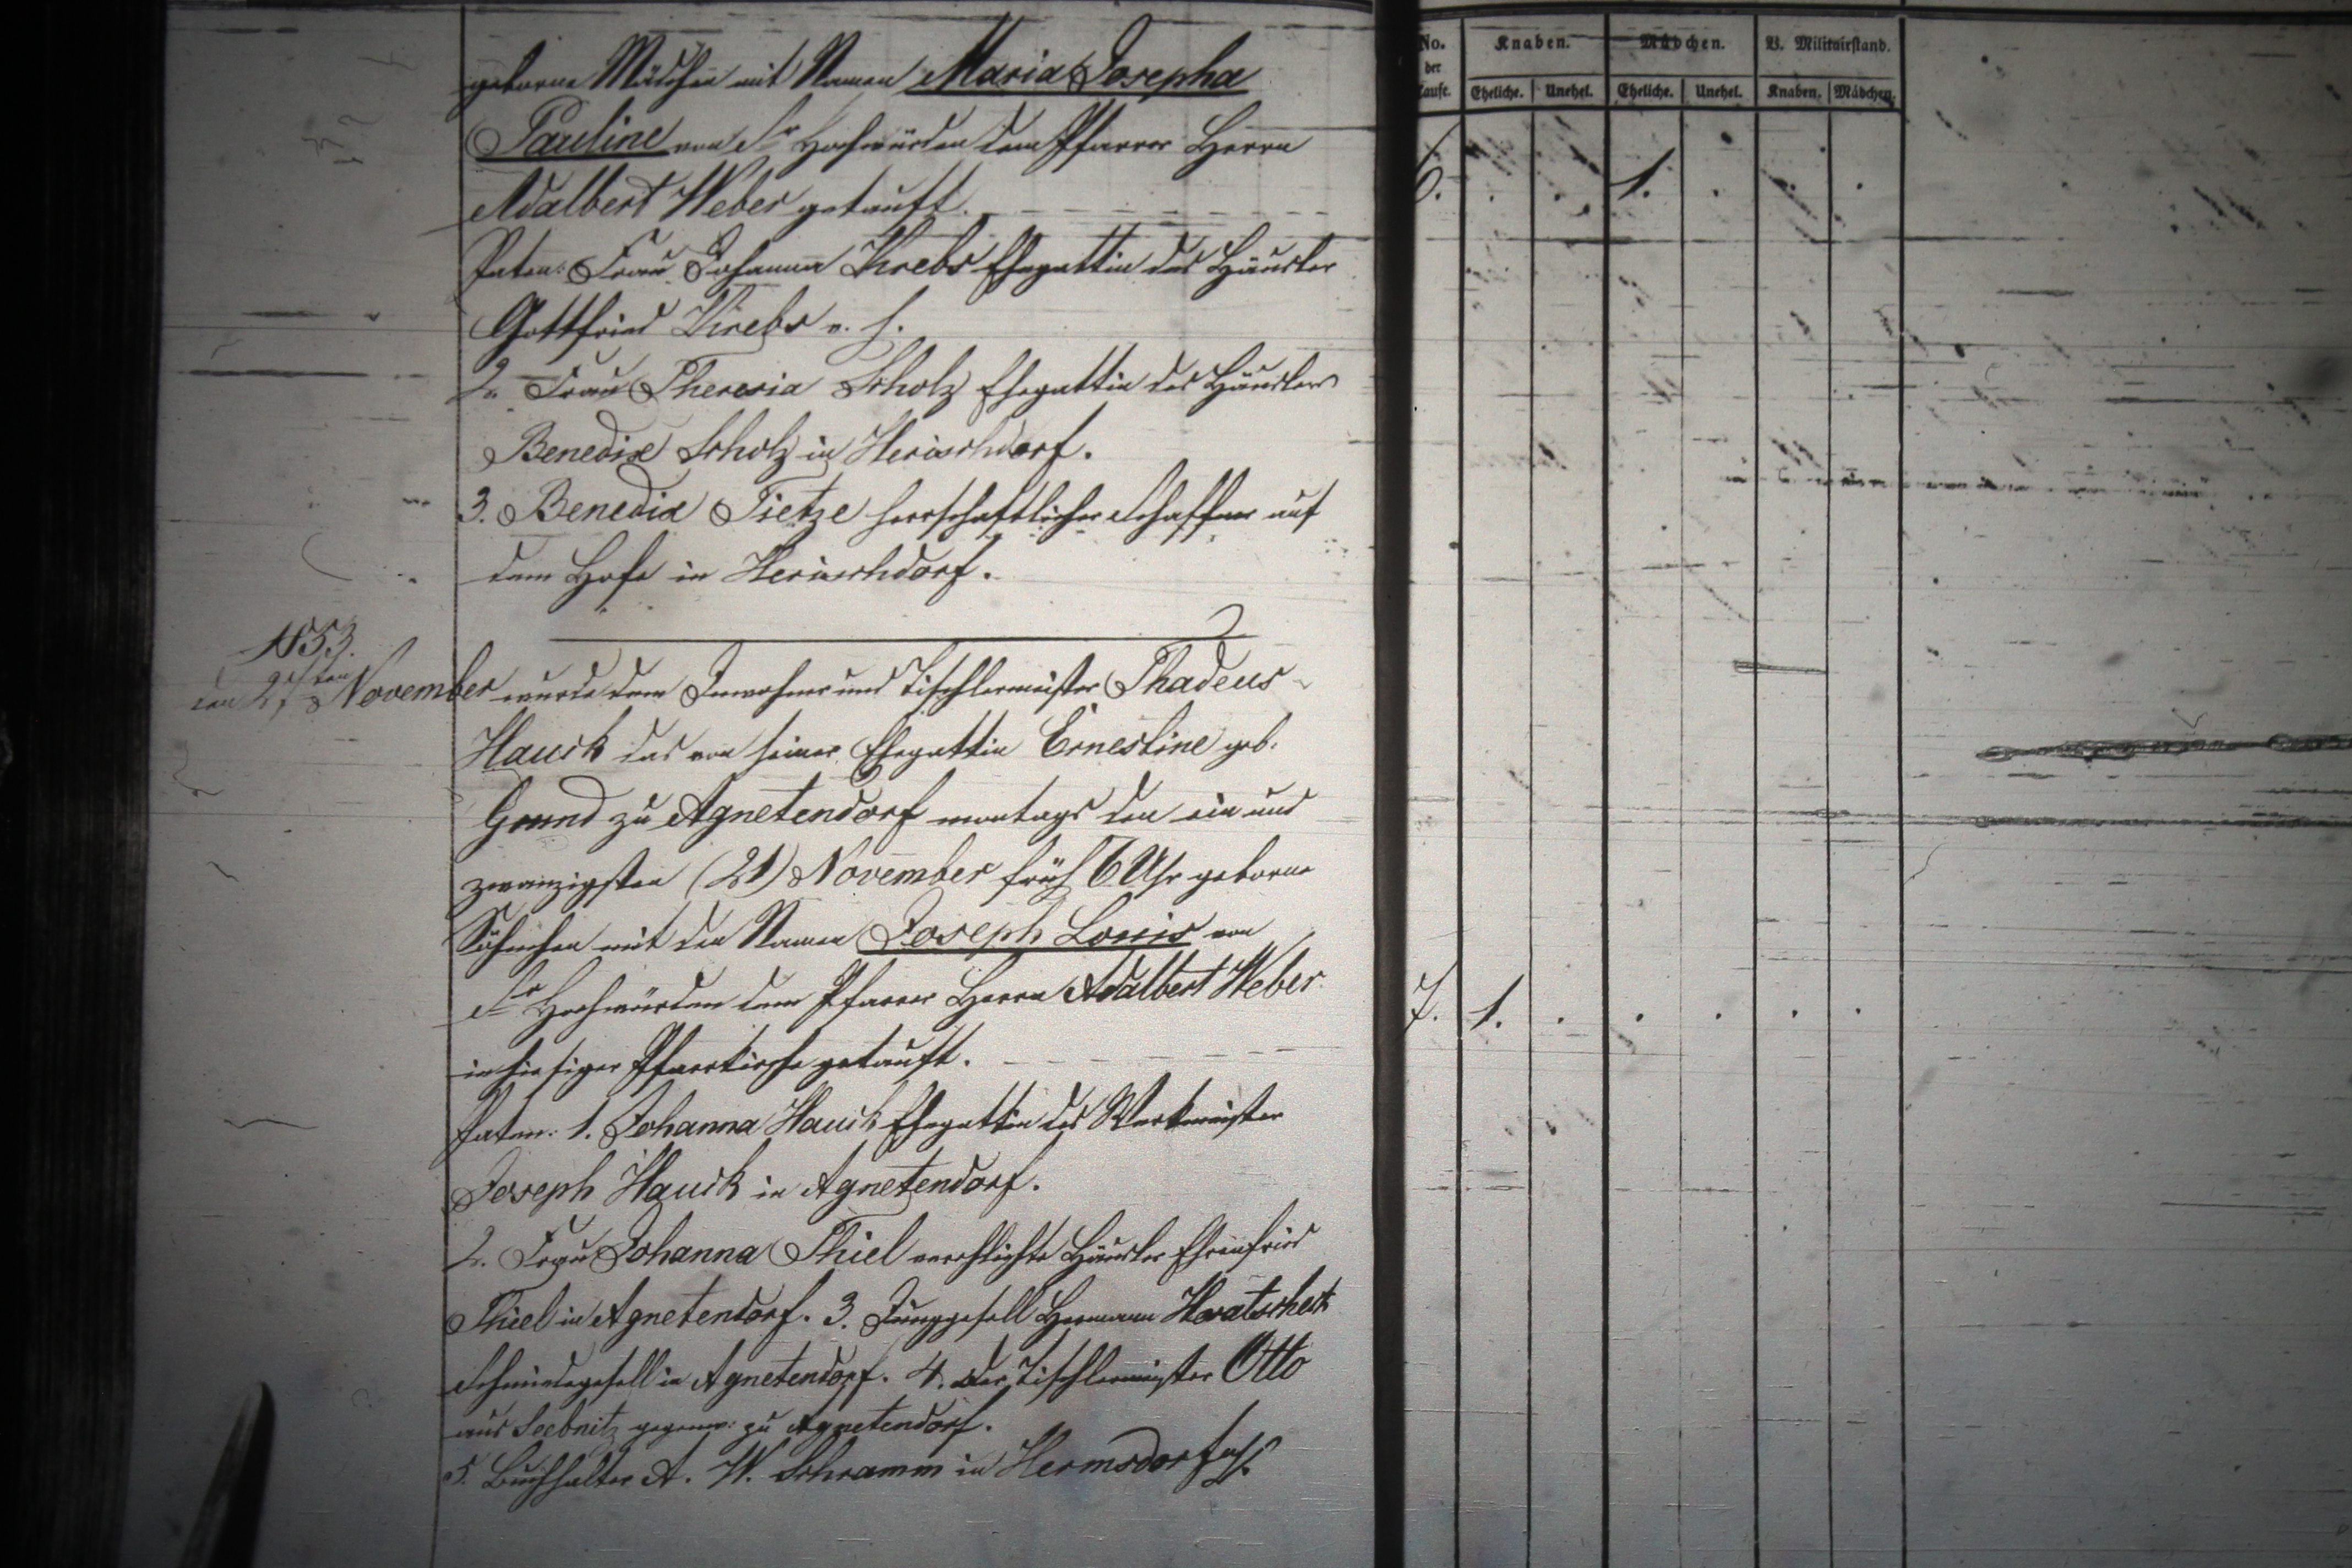 geborne Mädchen mit Namen Maria Josepha
Pauline von Sr Hochwürden dem Pfarrer Herrn
Adalbert Weber getauft.
Paten: Frau Johanna Krebs Ehegattin des Häusler
Gottfried Krebs v. h.
2. Frau Theresia Scholz Ehegattin des Häuslers
Benedix Scholz in Herischdorf.
3. Benedix Tietze herrschaftlicher Schaffner auf
dem Hofe in Herischdorf.
1853.
den November wurde dem Inwohner und Tischlermeister Thadeus
Hauck das von seiner Ehegattin Ernestine geb.
Grund zu Agnetendorf montags den ein und
zwanzigsten (21) November früh 6 Uhr geborne
Söhnchen mit den Namen Joseph Louis von
Sr Hochwürden dem Pfarrer Herrn Adalbert Weber
in hiesiger Pfarrkirche getauft.
Paten: 1. Johanna Hauck Ehegattin des Werkmeister
Joseph Hauck in Agnetendorf.
2. Frau Johanna Thiel verehlichte Häusler Ehrenfried
Thiel in Agnetendorf. 3. Junggesell Hermann Hvatscheck
Schmiedegesell in Agnetendorf. 4. der Tischlermeister Otto
aus Seebnitz gegenw: zu Agnetendorf.
5. Buchhalter A. W. Schramm in Hermsdorf
No. der Taufe. Knaben. Mädchen. V. Militairstand.
Eheliche. Unehel. Eheliche. Unehel. Knaben. Mädchen.
6. . . 1. . . .
7. 1. . . . . .